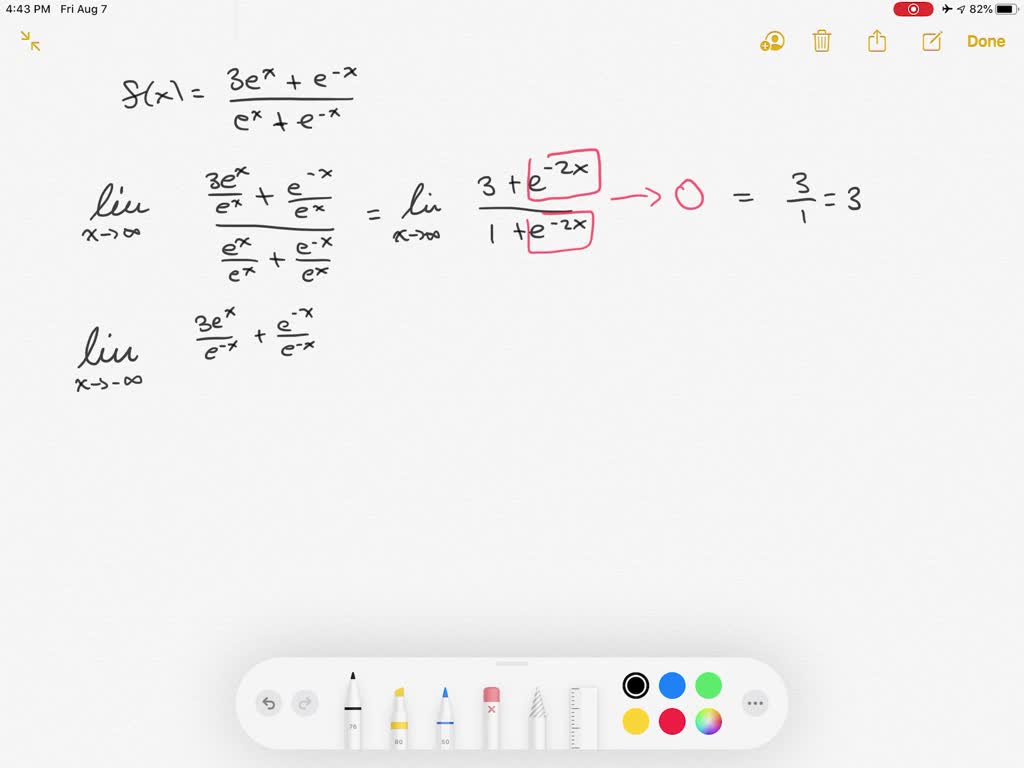 4:43 PM Fri Aug 7 82%
Done
f(x) = (3eˣ + e⁻ˣ)/(eˣ + e⁻ˣ)
lim x→∞ (3eˣ/eˣ + e⁻ˣ/eˣ)/(eˣ/eˣ + e⁻ˣ/eˣ) = lim x→∞ (3 + e⁻²ˣ)/(1 + e⁻²ˣ) → 0 = 3/1 = 3
lim x→-∞ 3eˣ/e⁻ˣ + e⁻ˣ/e⁻ˣ
76 80 50